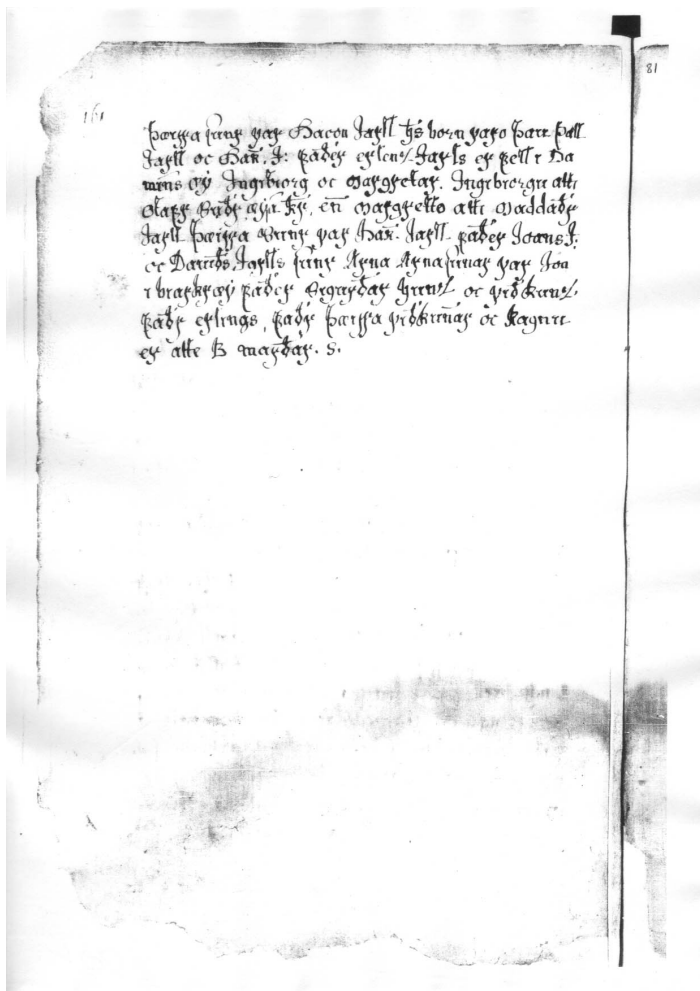 161 81
þæirra sunr var Hacon Jarll h̅s born varo þau Pall
Jarll oc Har̅. J: faðer erlenz Jarls er fell i Ha
mins vy Ingibiorg oc Margretar. Ingibiorgu atti
Olafr Suðr eyia kr̅, en̅ Margretto atti Maddaðr
Jarll þæirra sunr var Har̅. Jarll faðer Joans J.
oc Dauids Jarlls sunr Arna Arnasunar var Jon
faðer Sigurdar hunz oc viðkunz
faðr erlings, faðr þæirra viðkunnar oc Ragnu
er atte B mardar. s.